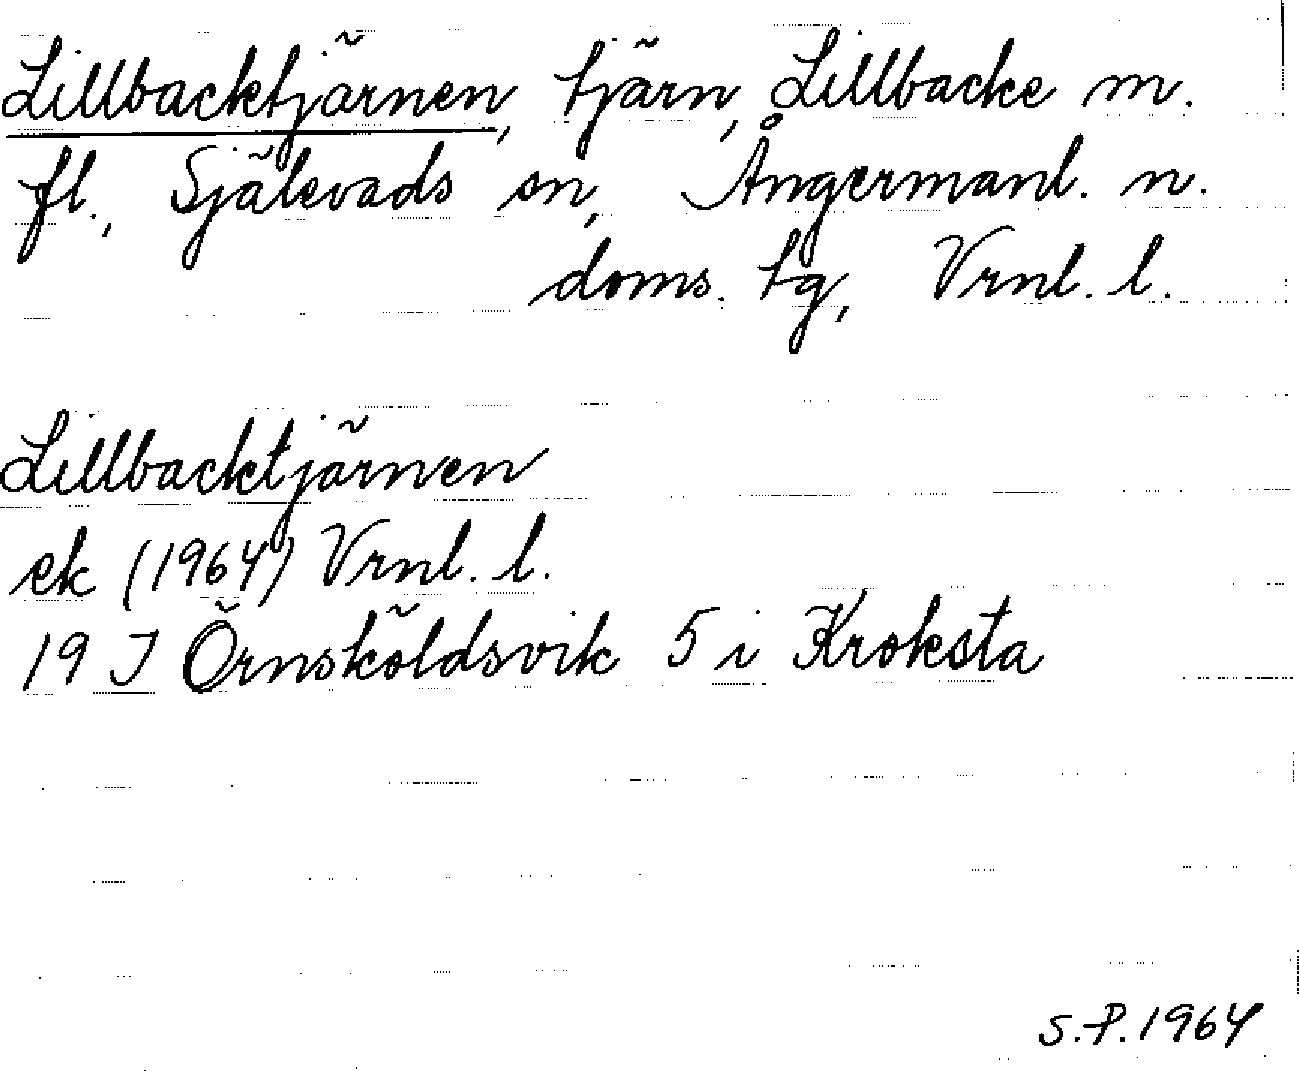 Lillbacktjärnen, tjärn, Lillbacke m.
fl., Själevads sn, Ångermanl. n.
doms. tg, Vrnl. l.
Lillbacktjärnen
ek (1964) Vrnl. l.
19 J Örnsköldsvik 5 i Kroksta
S.P. 1964